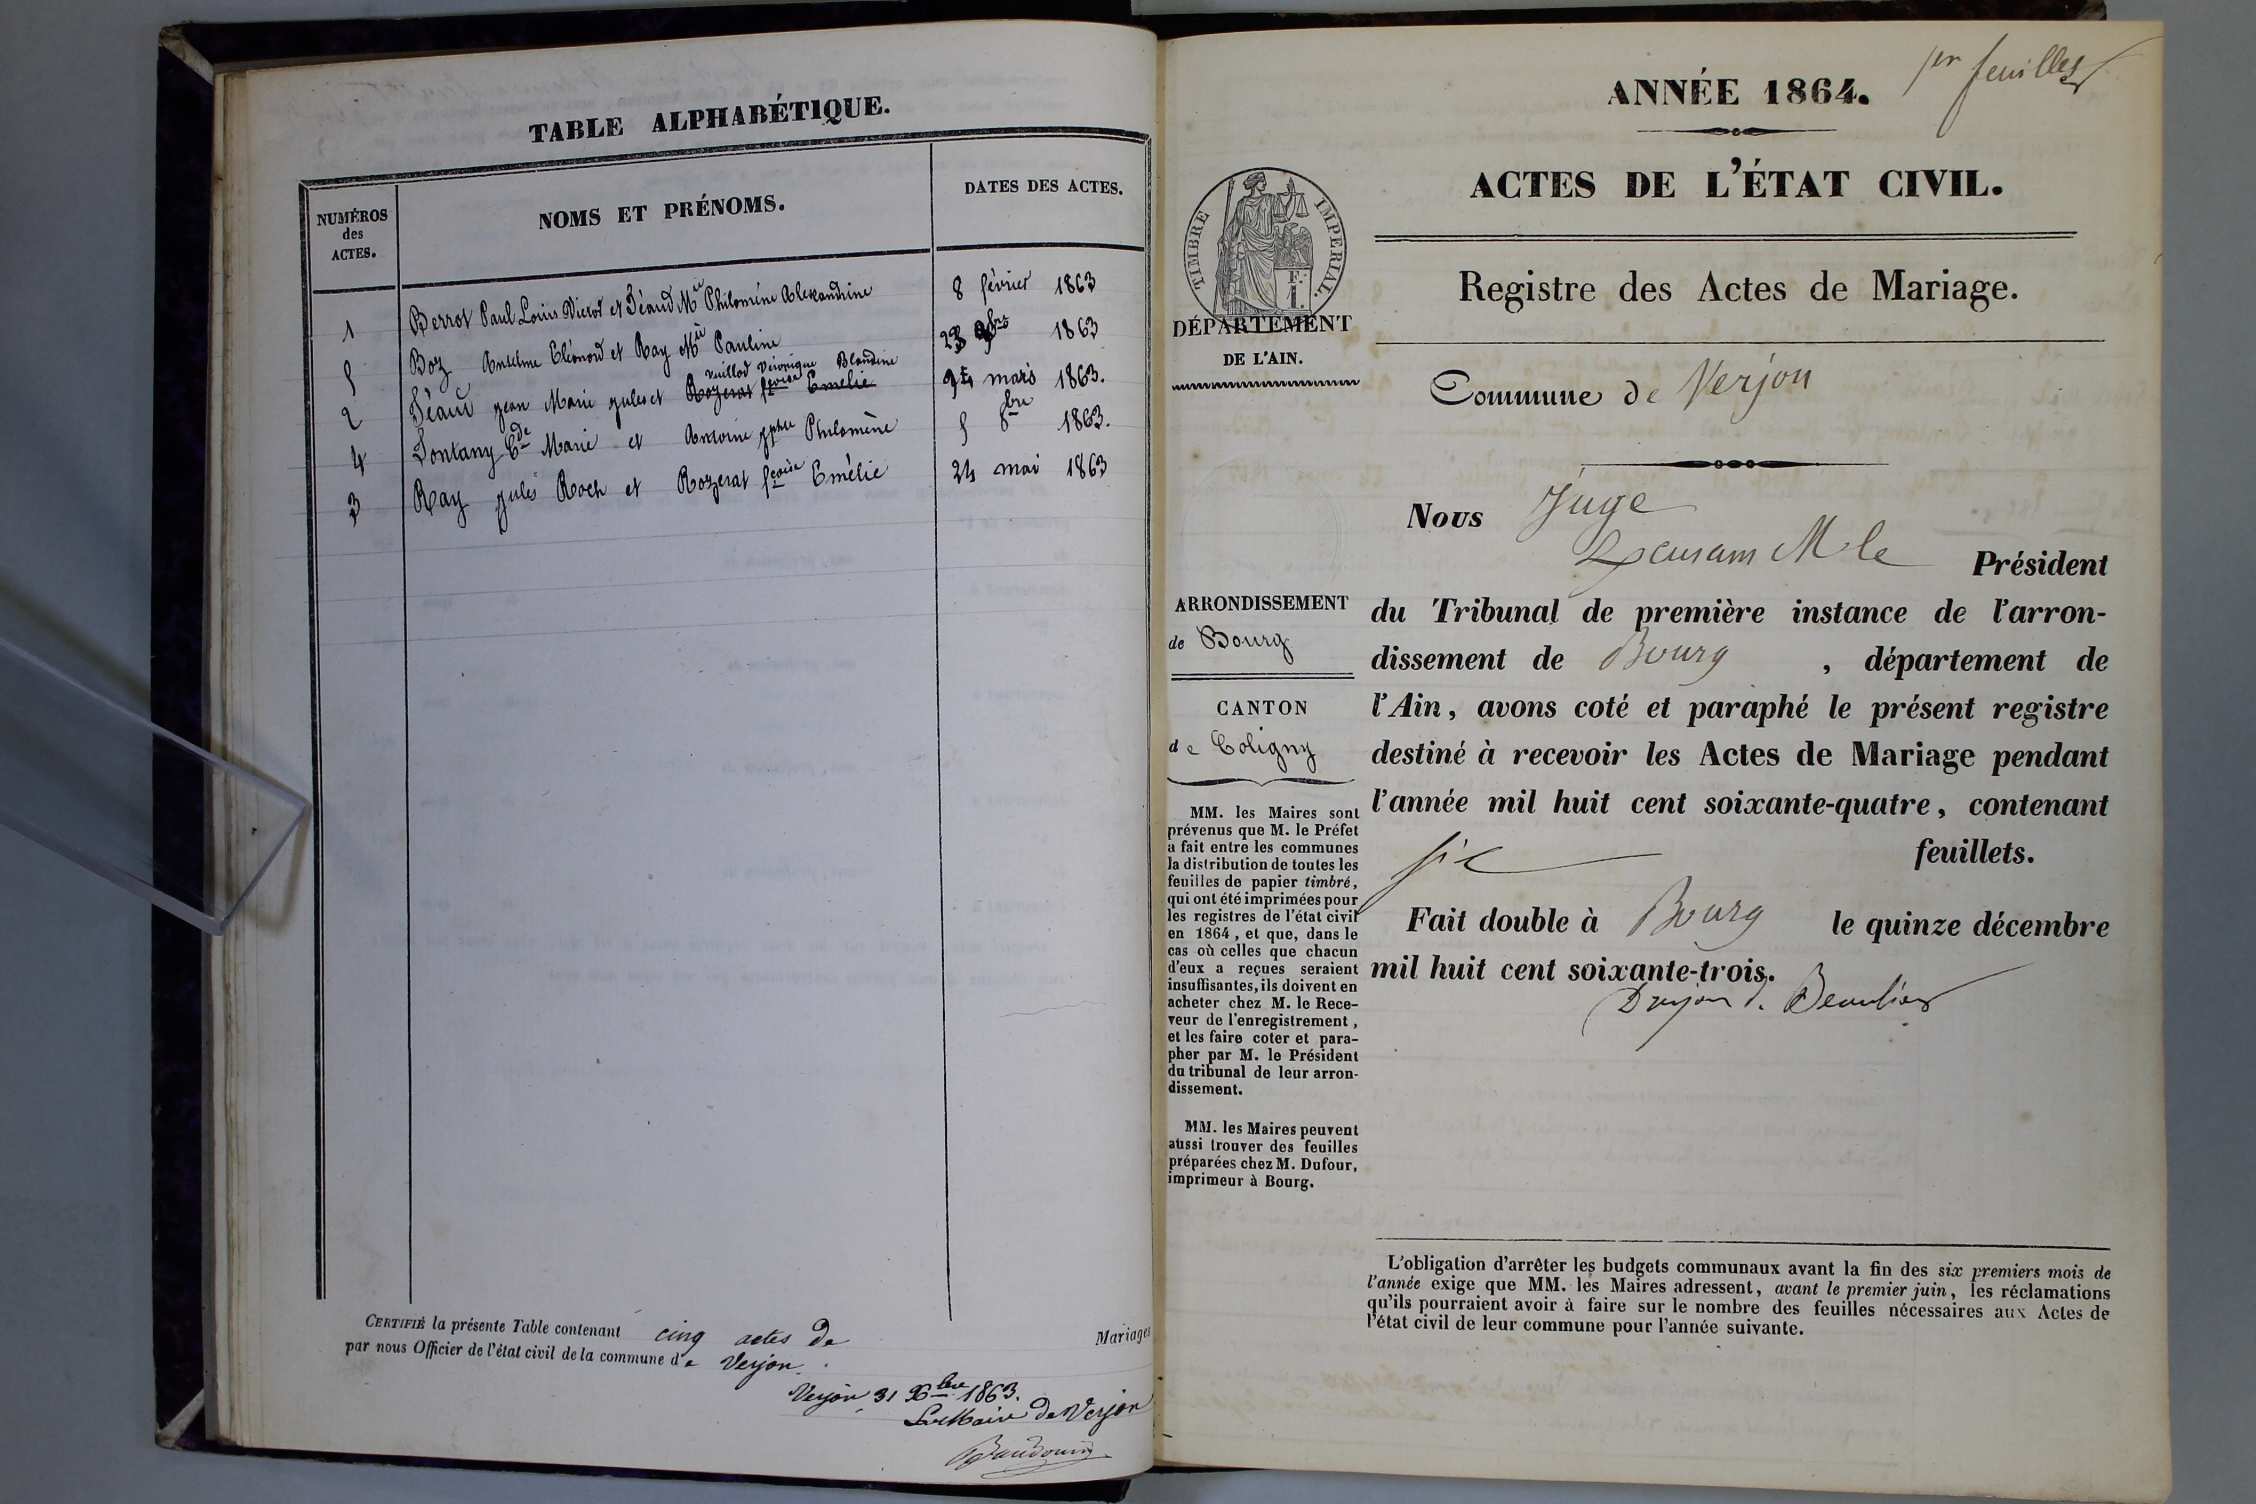 TABLE ALPHABÉTIQUE.
NUMÉROS
des
ACTES.
NOMS ET PRÉNOMS.
DATES DES ACTES.
1 Berrot Paul Louis Victor et Féaud Mie Philomène Alexandrine 8 février 1863
5 Boz Anselme Eléonord et Ray Mie Pauline 23 9bre 1863
Vuillod Véronique Blandine
2 Féaud jean Marie jules et Rozerat fcoise Emélie 24 mars 1863.
4 Fontany Cde Marie et Antoine jphte Philomène 5 8bre 1863.
3 Ray jules Roch et Rozerat fcoise Emélie 24 mai 1863
CERTIFIÉ la présente Table contenant cinq actes de Mariages
par nous Officier de l'état civil de la commune de Verjon.
Verjon, 31 Xbre 1863.
Le Maire de Verjon
1er feuillet
ANNÉE 1864.
ACTES DE L'ÉTAT CIVIL.
Registre des Actes de Mariage.
TIMBRE IMPÉRIAL.
F.
1.
DÉPARTEMENT
DE L'AIN.
Commune de Verjon
ARRONDISSEMENT
de Bourg
CANTON
de Coligny
MM. les Maires sont
prévenus que M. le Préfet
a fait entre les communes
la distribution de toutes les
feuilles de papier timbré,
qui ont été imprimées pour
les registres de l'état civil
en 1864, et que, dans le
cas où celles que chacun
d'eux a reçues seraient
insuffisantes, ils doivent en
acheter chez M. le Rece-
veur de l'enregistrement,
et les faire coter et para-
pher par M. le Président
du tribunal de leur arron-
dissement.
MM. les Maires peuvent
aussi trouver des feuilles
préparées chez M. Dufour,
imprimeur à Bourg.
Nous Juge
M le Président
du Tribunal de première instance de l'arron-
dissement de Bourg, département de
l'Ain, avons coté et paraphé le présent registre
destiné à recevoir les Actes de Mariage pendant
l'année mil huit cent soixante-quatre, contenant
six feuillets.
Fait double à Bourg le quinze décembre
mil huit cent soixante-trois.
L'obligation d'arrêter les budgets communaux avant la fin des six premiers mois de
l'année exige que MM. les Maires adressent, avant le premier juin, les réclamations
qu'ils pourraient avoir à faire sur le nombre des feuilles nécessaires aux Actes de
l'état civil de leur commune pour l'année suivante.